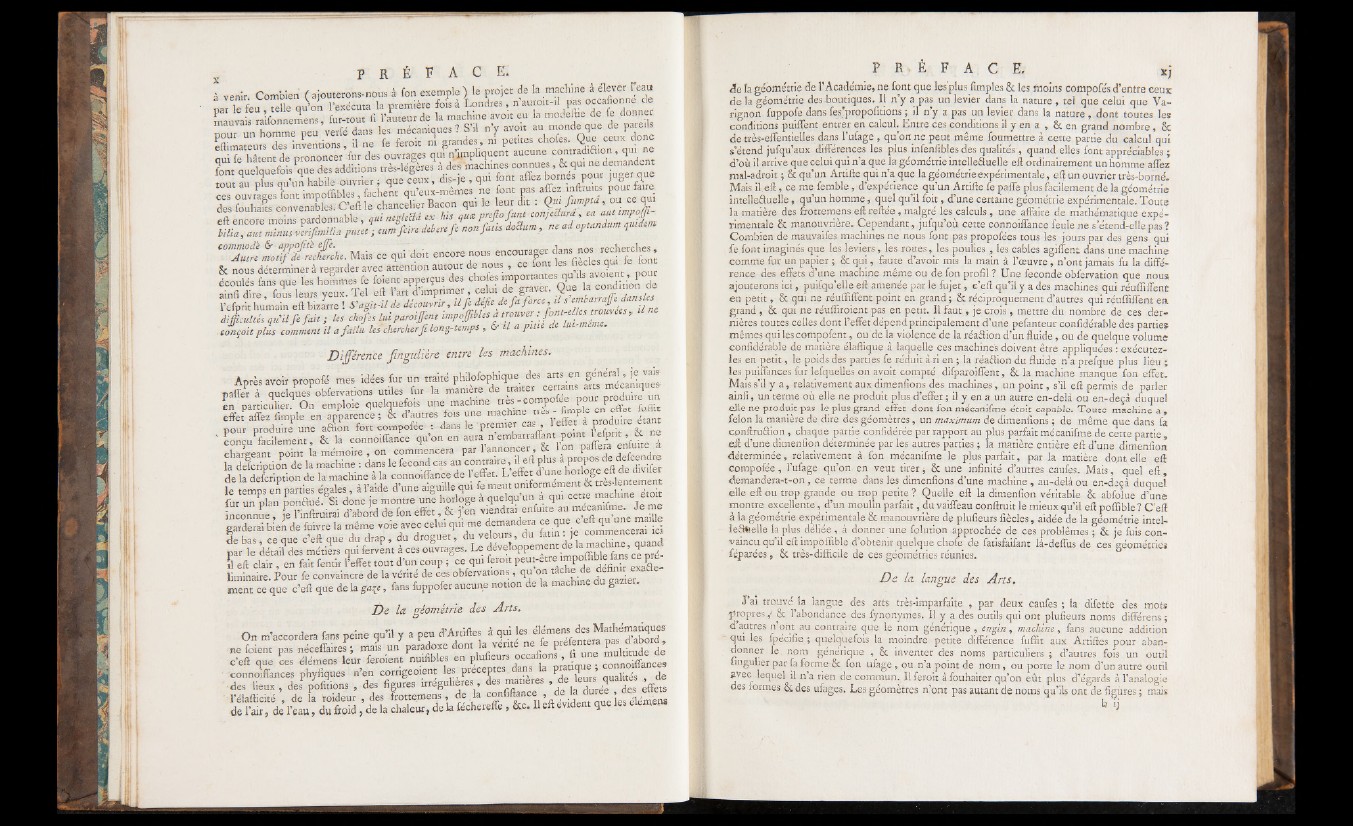 x
PRÉFACE.
à venir. Combien (ajouterons-nous à ſon exemple) le projet de la machine à élever l'eau
par le feu, telle qu'on l'exécuta la première fois à Londres, n'auroit-il pas occaſionné de
mauvais raiſonnemens, ſur-tout ſi l'auteur de la machine avoit eu la modeſtie de ſe donner
pour un homme peu verſé dans les mécaniques ? S'il n'y avoit au monde que de pareils
eſtimateurs des inventions, il ne ſe feroit ni grandes, ni petites choſes. Que ceux donc
qui ſe hâtent de prononcer ſur des ouvrages qui n'impliquent aucune contradiction, qui ne
ſont quelquefois que des additions très-légères à des machines connues, & qui ne demandent
tout au plus qu'un habile ouvrier ; que ceux, dis-je, qui ſont aſſez bornés pour juger que
ces ouvrages ſont impoſſibles, ſachent qu'eux-mêmes ne ſont pas aſſez inſtruits pour faire
des ſouhaits convenables. C'eſt le chancelier Bacon qui le leur dit : Qui ſumptâ, ou ce qui
eſt encore moins pardonnable, qui neglectâ ex his quæ preſto ſunt conjecturâ, ea aut impoſſi-
bilia, aut minus veriſimilia putet ; eum ſcire debere ſe non ſatis doctum, ne ad optandum quidem
commodè & appoſitè eſſe.
Autre motif de recherche. Mais ce qui doit encore nous encourager dans nos recherches,
& nous déterminer à regarder avec attention autour de nous, ce ſont les ſiècles qui ſe ſont
écoulés ſans que les hommes ſe ſoient apperçus des choſes importantes qu'ils avoient, pour
ainſi dire, ſous leurs yeux. Tel eſt l'art d'imprimer, celui de graver. Que la condition de
l'eſprit humain eſt bizarre ! S'agit-il de découvrir, il ſe défie de ſa force, il s'embarraſſe dans les
difficultés qu'il ſe fait ; les choſes lui paroiſſent impoſſibles à trouver : ſont-elles trouvées, il ne
conçoit plus comment il a fallu les chercher ſi long-temps, & il a pitié de lui-même.
Différence ſingulière entre les machines.
Après avoir propoſé mes idées ſur un traité philoſophique des arts en général, je vais
paſſer à quelques obſervations utiles ſur la manière de traiter certains arts mécaniques
en particulier. On emploie quelquefois une machine très-compoſée pour produire un
effet aſſez ſimple en apparence ; & d'autres fois une machine très-ſimple en effet ſuffit
pour produire une action fort compoſée : dans le premier cas, l'effet à produire étant
conçu facilement, & la connoiſſance qu'on en aura n'embarraſſant point l'eſprit, & ne
chargeant point la mémoire, on commencera par l'annoncer, & l'on paſſera enſuite à
la deſcription de la machine : dans le ſecond cas au contraire, il eſt plus à propos de deſcendre
de la deſcription de la machine à la connoiſſance de l'effet. L'effet d'une horloge eſt de diviſer
le temps en parties égales, à l'aide d'une aiguille qui ſe meut uniformément & très-lentement
ſur un plan ponctué. Si donc je montre une horloge à quelqu'un à qui cette machine étoit
inconnue, je l'inſtruirai d'abord de ſon effet, & j'en viendrai enſuite au mécaniſme. Je me
garderai bien de ſuivre la même voie avec celui qui me demandera ce que c'eſt qu'une maille
de bas, ce que c'eſt que du drap, du droguet, du velours, du ſatin : je commencerai ici
par le détail des métiers qui ſervent à ces ouvrages. Le développement de la machine, quand
il eſt clair, en fait ſentir l'effet tout d'un coup ; ce qui ſeroit peut-être impoſſible ſans ce pré-
liminaire. Pour ſe convaincre de la vérité de ces obſervations, qu'on tâche de définir exacte-
ment ce que c'eſt que de la gaze, ſans ſuppoſer aucune notion de la machine du gazier.
De la géométrie des Arts.
On m'accordera ſans peine qu'il y a peu d'Artiſtes à qui les élémens des Mathématiques
ne ſoient pas néceſſaires ; mais un paradoxe dont la vérité ne ſe préſentera pas d'abord,
c'eſt que ces élémens leur ſeroient nuiſibles en pluſieurs occaſions, ſi une multitude de
connoiſſances phyſiques n'en corrigeoient les préceptes dans la pratique ; connoiſſances
des lieux, des poſitions, des figures irrégulières, des matières, de leurs qualités, de
l'élaſticité, de la roideur, des frottemens, de la conſiſtance, de la durée, des effets
de l'air, de l'eau, du froid, de la chaleur, de la féchereſſe, &c. Il eſt évident que les élémens
PRÉFACE.
xj
de la géométrie de l'Académie, ne ſont que les plus ſimples & les moins compoſés d'entre ceux
de la géométrie des boutiques. Il n'y a pas un levier dans la nature, tel que celui que Va-
rignon ſuppoſe dans ſes propoſitions ; il n'y a pas un levier dans la nature, dont toutes les
conditions puiſſent entrer en calcul. Entre ces conditions il y en a, & en grand nombre, &
de très-eſſentielles dans l'uſage, qu'on ne peut même ſoumettre à cette partie du calcul qui
s'étend juſqu'aux différences les plus inſenſibles des qualités, quand elles ſont appréciables ;
d'où il arrive que celui qui n'a que la géométrie intellectuelle eſt ordinairement un homme aſſez
mal-adroit ; & qu'un Artiſte qui n'a que la géométrie expérimentale, eſt un ouvrier très-borné.
Mais il eſt, ce me ſemble, d'expérience qu'un Artiſte ſe paſſe plus facilement de la géométrie
intellectuelle, qu'un homme, quel qu'il ſoit, d'une certaine géométrie expérimentale. Toute
la matière des frottemens eſt reſtée, malgré les calculs, une affaire de mathématique expé-
rimentale & manouvrière. Cependant, juſqu'où cette connoiſſance ſeule ne s'étend-elle pas ?
Combien de mauvaiſes machines ne nous ſont pas propoſées tous les jours par des gens qui
ſe ſont imaginés que les leviers, les roues, les poulies, les cables agiſſent dans une machine
comme ſur un papier ; & qui, faute d'avoir mis la main à l'œuvre, n'ont jamais ſu la diffé-
rence des effets d'une machine même ou de ſon profil ? Une ſeconde obſervation que nous
ajouterons ici, puiſqu'elle eſt amenée par le ſujet, c'eſt qu'il y a des machines qui réuſſiſſent
en petit, & qui ne réuſſiſſent point en grand ; & réciproquement d'autres qui réuſſiſſent en
grand, & qui ne réuſſiroient pas en petit. Il faut, je crois, mettre du nombre de ces der-
nières toutes celles dont l'effet dépend principalement d'une peſanteur conſidérable des parties
mêmes qui les compoſent, ou de la violence de la réaction d'un fluide, ou de quelque volume
conſidérable de matière élaſtique à laquelle ces machines doivent être appliquées : exécutez-
les en petit, le poids des parties ſe réduit à rien ; la réaction du fluide n'a preſque plus lieu ;
les puiſſances ſur leſquelles on avoit compté diſparoiſſent, & la machine manque ſon effet.
Mais s'il y a, relativement aux dimenſions des machines, un point, s'il eſt permis de parler
ainſi, un terme où elle ne produit plus d'effet ; il y en a un autre en-delà ou en-deçà duquel
elle ne produit pas le plus grand effet dont ſon mécaniſme étoit capable. Toute machine a,
ſelon la manière de dire des géomètres, un maximum de dimenſions ; de même que dans ſa
conſtruction, chaque partie conſidérée par rapport au plus parfait mécaniſme de cette partie,
eſt d'une dimenſion déterminée par les autres parties ; la matière entière eſt d'une dimenſion
déterminée, relativement à ſon mécaniſme le plus parfait, par la matière dont elle eſt
compoſée, l'uſage qu'on en veut tirer, & une infinité d'autres cauſes. Mais, quel eſt,
demandera-t-on, ce terme dans les dimenſions d'une machine, au-delà ou en-deçà duquel
elle eſt ou trop grande ou trop petite ? Quelle eſt la dimenſion véritable & abſolue d'une
montre excellente, d'un moulin parfait, du vaiſſeau conſtruit le mieux qu'il eſt poſſible ? C'eſt
à la géométrie expérimentale & manouvrière de pluſieurs ſiècles, aidée de la géométrie intel-
lectuelle la plus déliée, à donner une ſolution approchée de ces problèmes ; & je ſuis con-
vaincu qu'il eſt impoſſible d'obtenir quelque choſe de ſatisfaiſant là-deſſus de ces géométries
ſéparées, & très-difficile de ces géométries réunies.
De la langue des Arts.
J'ai trouvé la langue des arts très-imparfaite, par deux cauſes ; la diſette des mots
propres, & l'abondance des ſynonymes. Il y a des outils qui ont pluſieurs noms différens ;
d'autres n'ont au contraire que le nom générique, engin, machine, ſans aucune addition
qui les ſpécifie ; quelquefois la moindre petite différence ſuffit aux Artiſtes pour aban-
donner le nom générique, & inventer des noms particuliers ; d'autres fois un outil
ſingulier par ſa forme & ſon uſage, ou n'a point de nom, ou porte le nom d'un autre outil
avec lequel il n'a rien de commun. Il ſeroit à ſouhaiter qu'on eût plus d'égards à l'analogie
des formes & des uſages. Les géomètres n'ont pas autant de noms qu'ils ont de figures ; mais
b ij